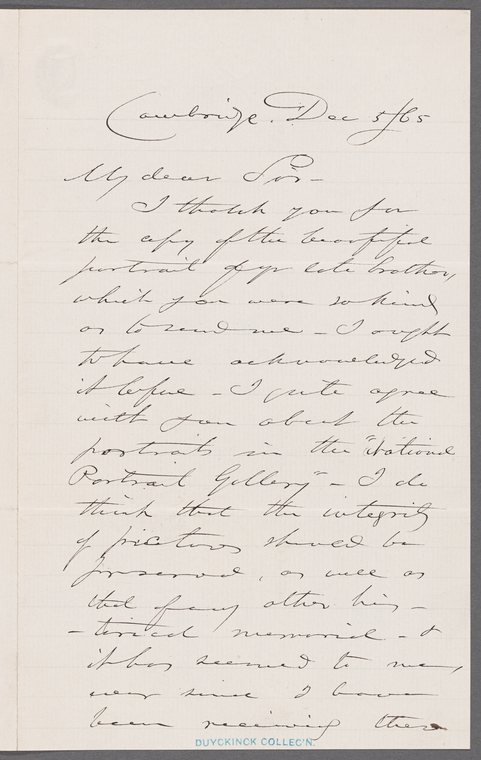 Cambridge. Dec 5/65
My dear Sir -
I thank you for
the copy of the beautiful
portrait of yr late brother,
which you were so kind
as to send me - I ought
to have acknowledged
it before - I quite agree
with you about the
portraits in the "National
Portrait Gallery" - I do
think that the integrity
of pictures should be
preserved, as well as
that of any other his-
-torical memorial - &
it has seemed to me,
ever since I have
been receiving these
DUYCKINCK COLLEC'N.